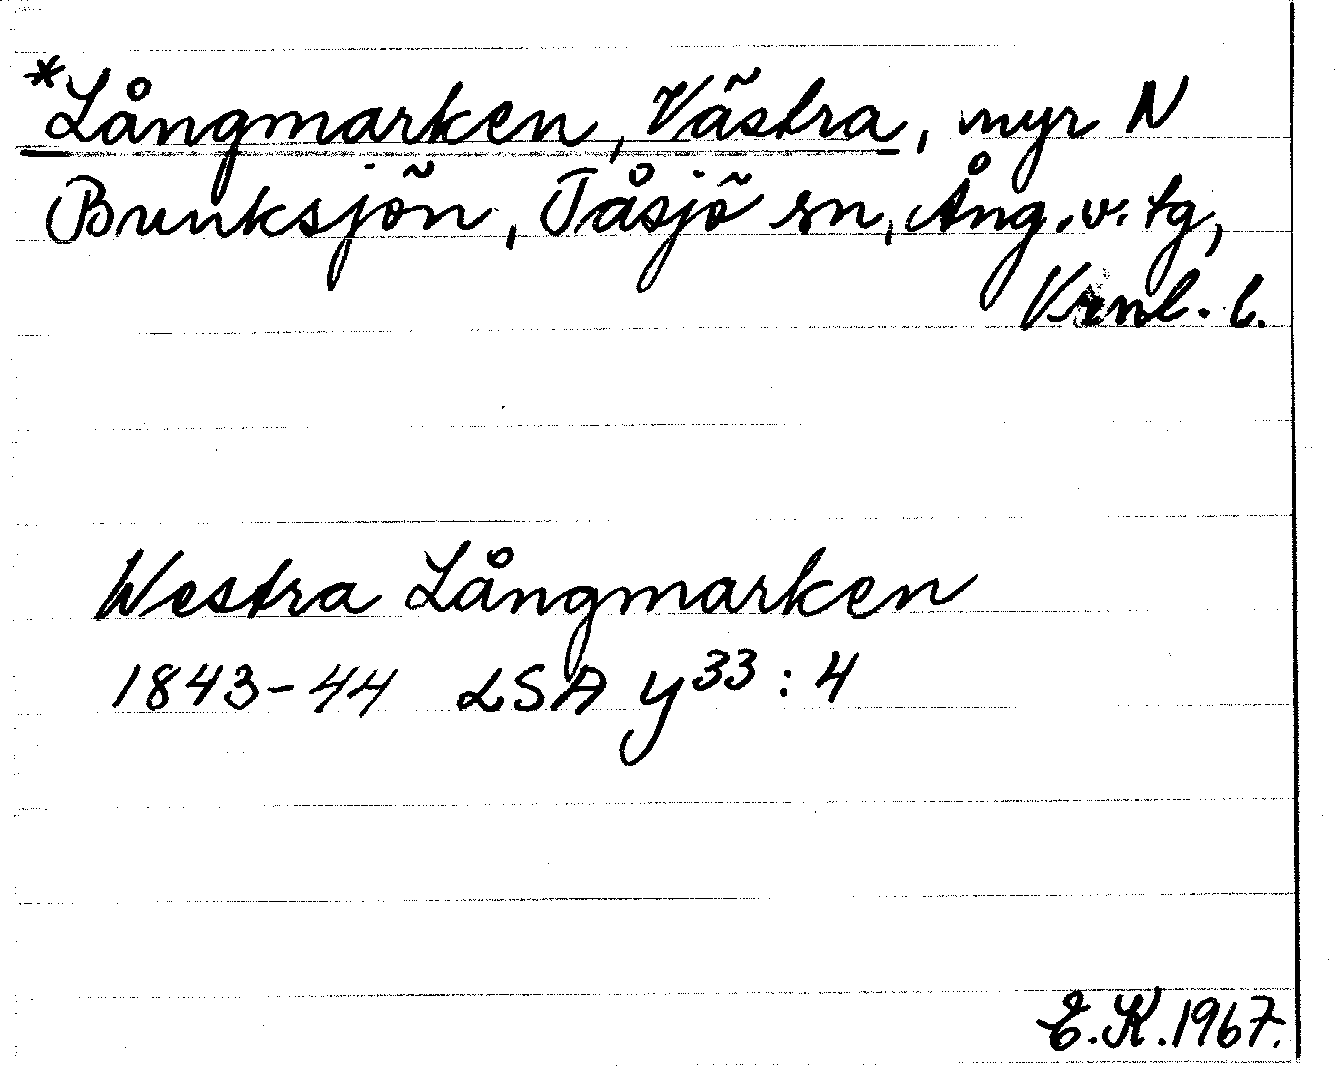 *Långmarken, Västra, myr N
Brunksjön, Tåsjö sn, Ång. v. tg,
Vrnl. l.
Westra Långmarken
1843-44 LSA y33:4
E.K. 1967.